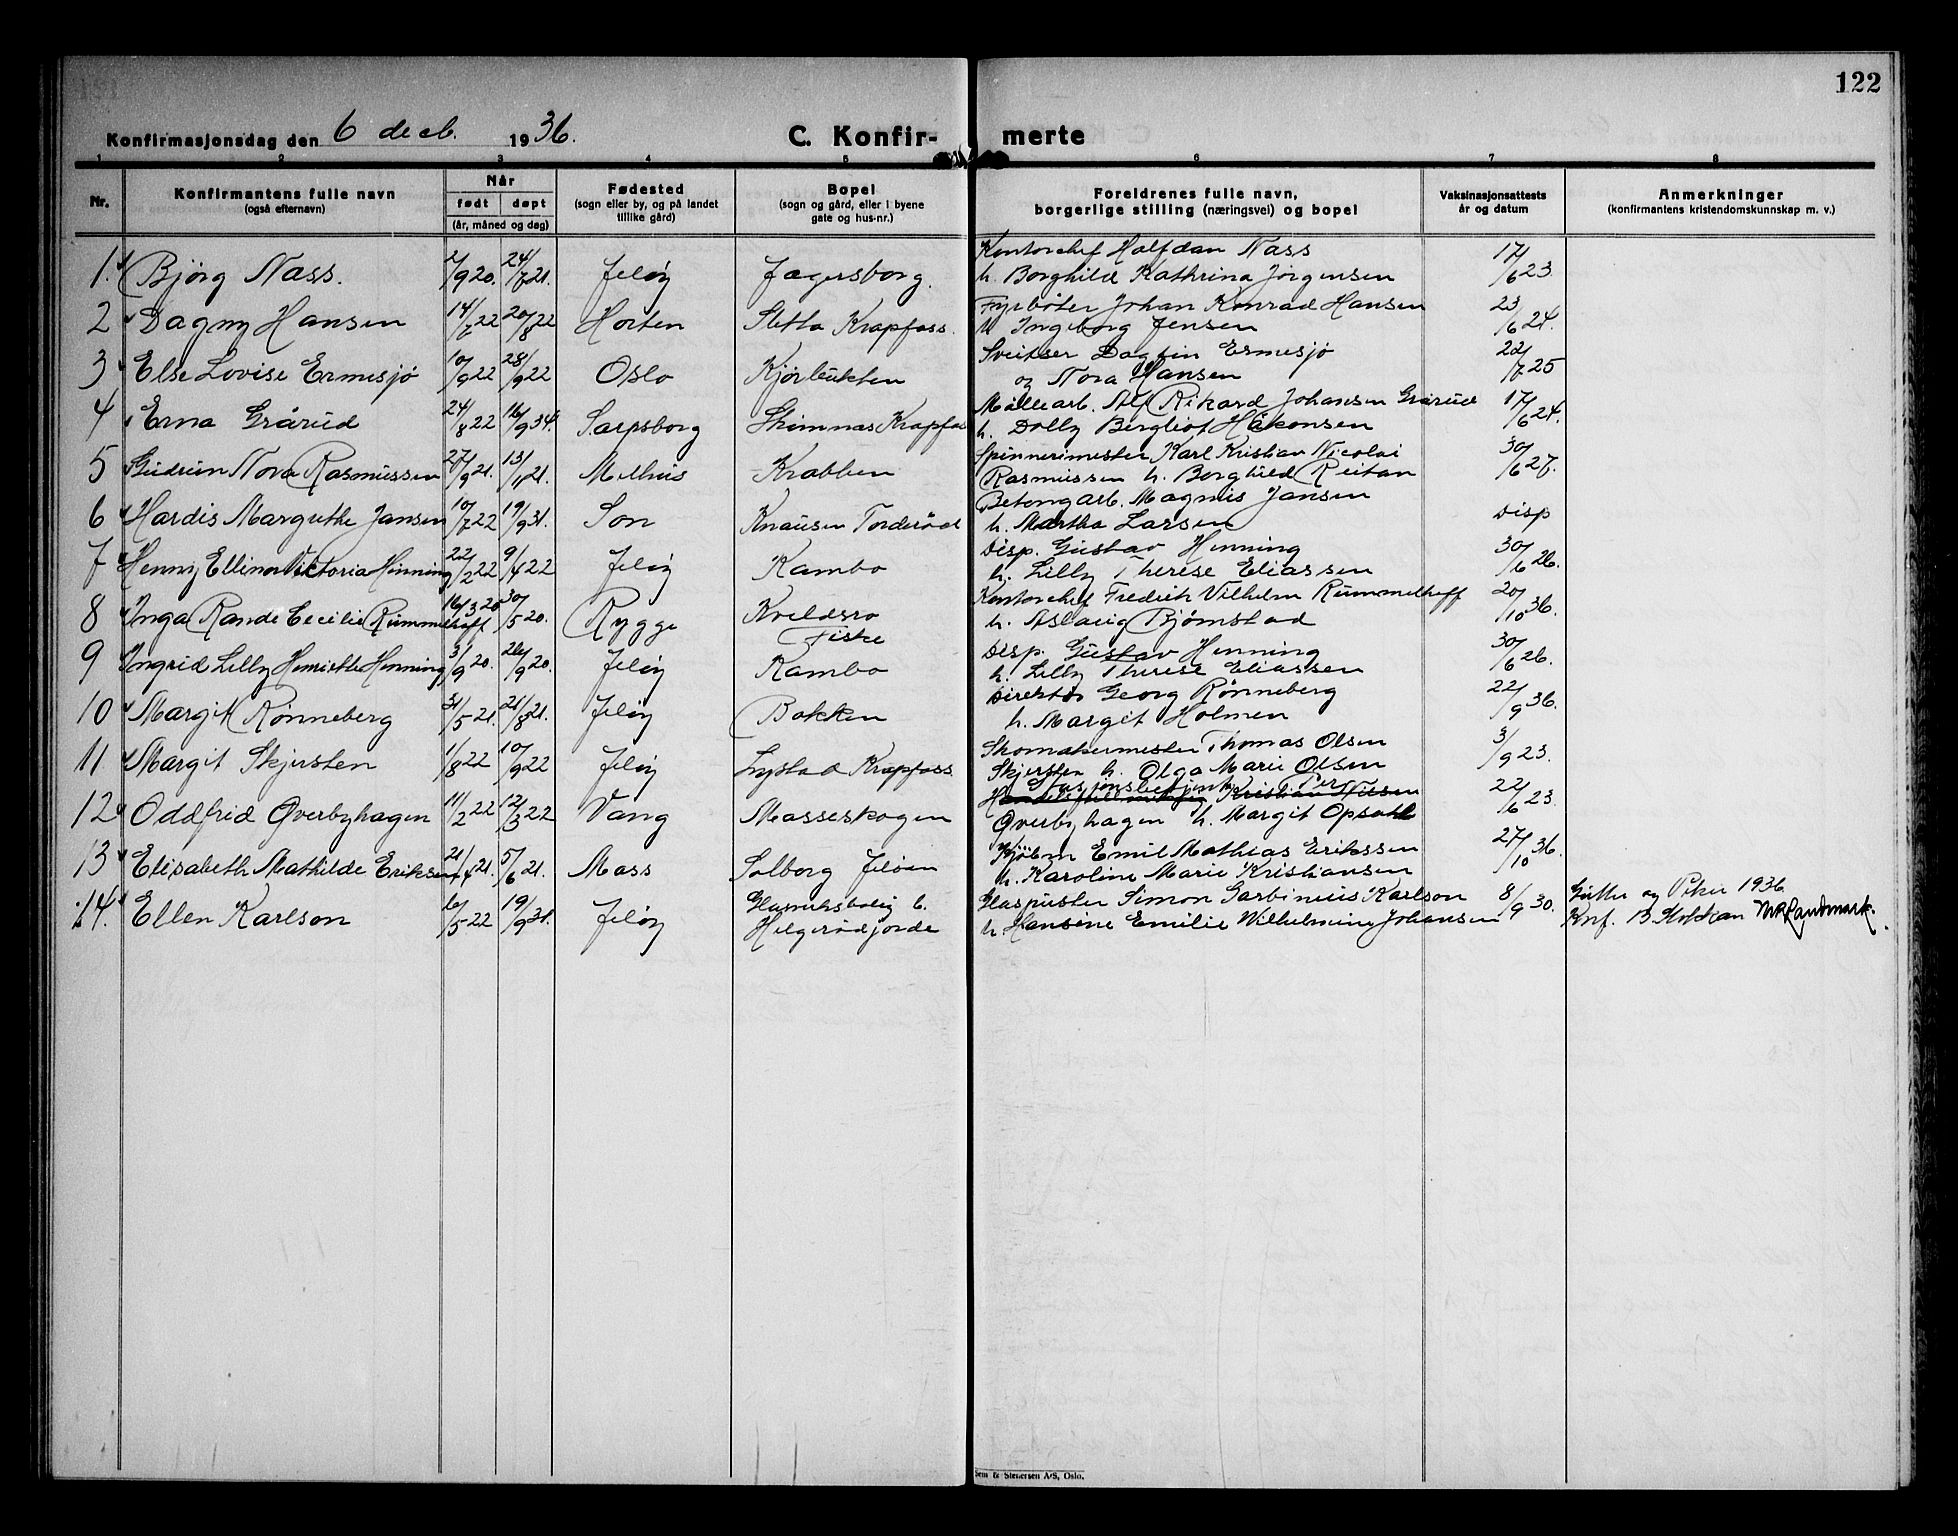 122
Konfirmasjonsdag den 6 decb. 1936.
C. Konfir- merte
1 2 3 4 5 6 7 8
Nr.
Konfirmantens fulle navn
(også efternavn)
Når
født døpt
(år, måned og dag)
Fødested
(sogn eller by, og på landet
tillike gård)
Bopel
(sogn og gård, eller i byene
gate og hus-nr.)
Foreldrenes fulle navn,
borgerlige stilling (næringsvei) og bopel
Vaksinasjonsattests
år og datum
Anmerkninger
(konfirmantens kristendomskunnskap m. v.)
Kontorchef Halfdan Næss
1. Bjørg Næss. /9 20. 24/7 21. Jeløy Jægersborg. h. Borghild Kathrina Jørgensen 17/6 23.
Fyrbøter Johan Konrad Hansen
2 Dagny Hansen 14/7 22 20/8 22 Horten Sletta Krapfoss. h Ingeborg Jensen 23/6 24.
Sveitser Dagfin Ermesjø
3 Else Lovise Ermesjø 10/9 22 28/9 22 Oslo Kjørbukten og Nora Hansen 22/7 25
Møllearb. Alf Rikard Johansen Grårud
4 Erna Grårud 24/8 22 16/9 34. Sarpsborg Skimnæs Krapfos h. Dolly Bergliot Håkonsen 17/6 24.
Spinnerimester Karl Kristian Nicolai
5 Gudrun Nora Rasmussen 27/9 21. 13/11 21. Melhus Krabben Rasmussen h. Borghild Reitan 30/6 27.
Betongarb. Magnus Jansen
6 Hardis Margrethe Jansen 10/7 22 19/9 31. Son Knausen Torderød h. Martha Larsen Disp
Disp. Gustav Henning
7 Henny Ellinor Viktoria Henning 22/2 22 9/4 22 Jeløy Kambo h. Lilly Therese Eliassen 30/6 26.
Kontorchef Fredrik Vilhelm Rummelhoff
8 Inga Rande Cecilie Rummelhoff 16/3 20 30/5 20. Rygge Kveldsro h. Aslaug Bjørnstad 20/10 36.
Fiske
Disp. Gustav Henning
9 Ingrid Lilly Henriette Henning 3/9 20. 26/9 20. Jeløy Kambo h. Lilly Therese Eliassen 30/6 26.
Direktør Georg Rønneberg
10 Margit Rønneberg 31/5 21. 21/8 21. Jeløy Bakken h. Margit Holmen 22/9 36.
Skomakermester Thomas Olsen
11 Margit Skjersten 1/8 22 10/9 22 Jeløy Lystad Krapfoss Skjersten h. Olga Marie Olsen 3/9 23.
Stasjonsbetjent Per
Kristian Nilsen
12 Oddfrid Øverbyhagen 11/2 22 12/3 22 Vang Mosseskogen Øverbyhagen h. Margit Opsahl 22/6 23.
Kjøbm Emil Mathias Erikssen
13 Elisabeth Mathilde Eriksen 21/4 21. 5/6 21. Moss Solborg Jeløen h. Karoline Marie Kristiansen 27/10 36.
Glasverksbolig 6. Glaspuster Simon Sarbinius Karlson 8/9 30. Gutter og Piker 1936
14. Ellen Karlson 6/5 22 19/9 31. Jeløy Helgerødjorde h. Hansine Emilie Wilhelmine Johansen Knf.
Sem & Stenersen A/S, Oslo.